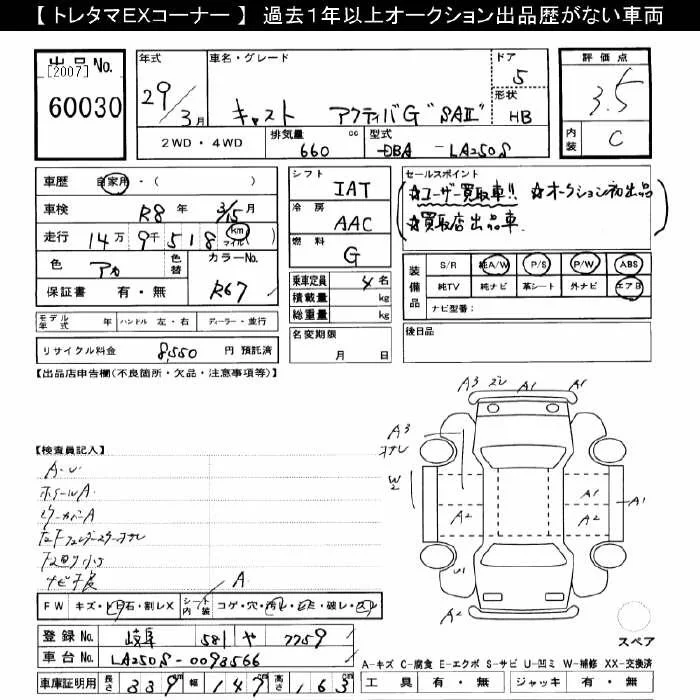 【 トレタマEXコーナー 】 過去１年以上オークション出品歴がない車両
出品No.
[2007]
60030
年式
29/3月
車名・グレード
キャスト アクティバG"SAⅡ"
ドア
5
形状
HB
評価点
3.5
内装
C
2WD・4WD
排気量
660 cc
型式
DBA-LA250S
車歴 自家用・( )
車検 R8年 3/15月
走行 14万9千518 km マイル( )
色 アカ
色替
カラーNo.
R67
保証書 有・無
シフト
IAT
冷房
AAC
燃料
G
セールスポイント
☆ユーザー買取車!! ☆オークション初出品
☆買取店出品車
装備品
S/R 純A/W P/S P/W ABS
純TV 純ナビ 革シート 外ナビ エアB
ナビ型番：
乗車定員 4名
積載量 kg
総重量 kg
名変期限
月 日
後日品
モデル年式 年 ハンドル 左・右 ディーラー・並行
リサイクル料金 8,550 円 預託済
【出品店申告欄(不良箇所・欠品・注意事項等)】
【検査員記入】
ホイールA
A3 A1 A1
A3
W2
A2
A1
A2
A1
U1
A2
A
FW キズ・ヒビ・石・割レX シート内装 コゲ・穴・汚レ・破レ・スレ
登録No. 岐阜 581 や 7759
車台No. LA250S-0098566
スペア
A-キズ C-腐食 E-エクボ S-サビ U-凹ミ W-補修 XX-交換済
車庫証明用 長さ 339 幅 147 高さ 163
工具 有・無 ジャッキ 有・無